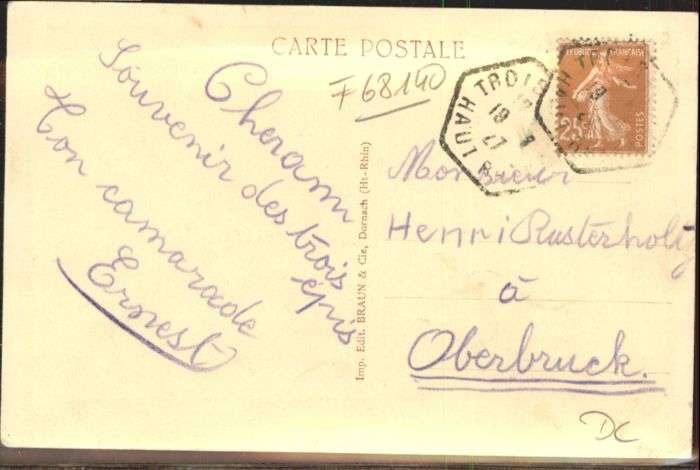 CARTE POSTALE
F68140
Cher ami
Souvenir des trois
épis
Ton camarade
Ernest
Imp. Edit. BRAUN & Cie, Dornach (Ht-Rhin)
HAUT TROIS
19
27
RÉPUBLIQUE FRANÇAISE
25c
POSTES
Monsieur
Henri Rusterholtz
à
Oberbruck.
DC